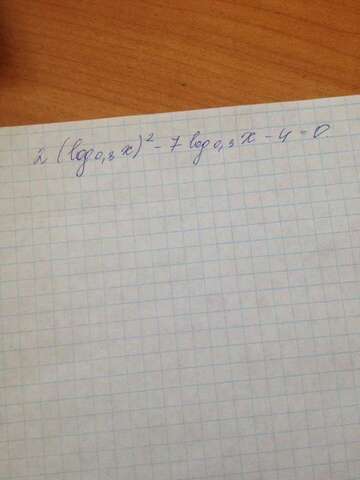 2 (log₀,₃ x)² - 7 log₀,₃ x - 4 = 0